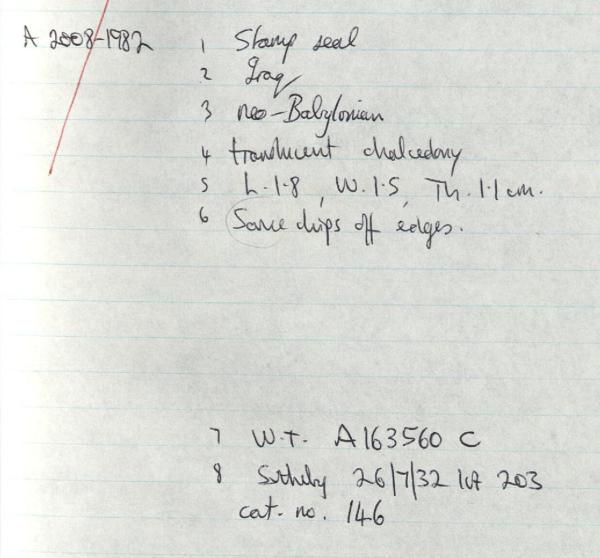 A 2008-1982 1 Stamp seal
2 Iraq
3 neo-Babylonian
4 translucent chalcedony
5 L. 1·8, W. 1·5, Th. 1·1 cm.
6 Some chips off edges.
7 W.T. A163560 C
8 Sotheby 26/7/32 lot 203
cat. no. 146